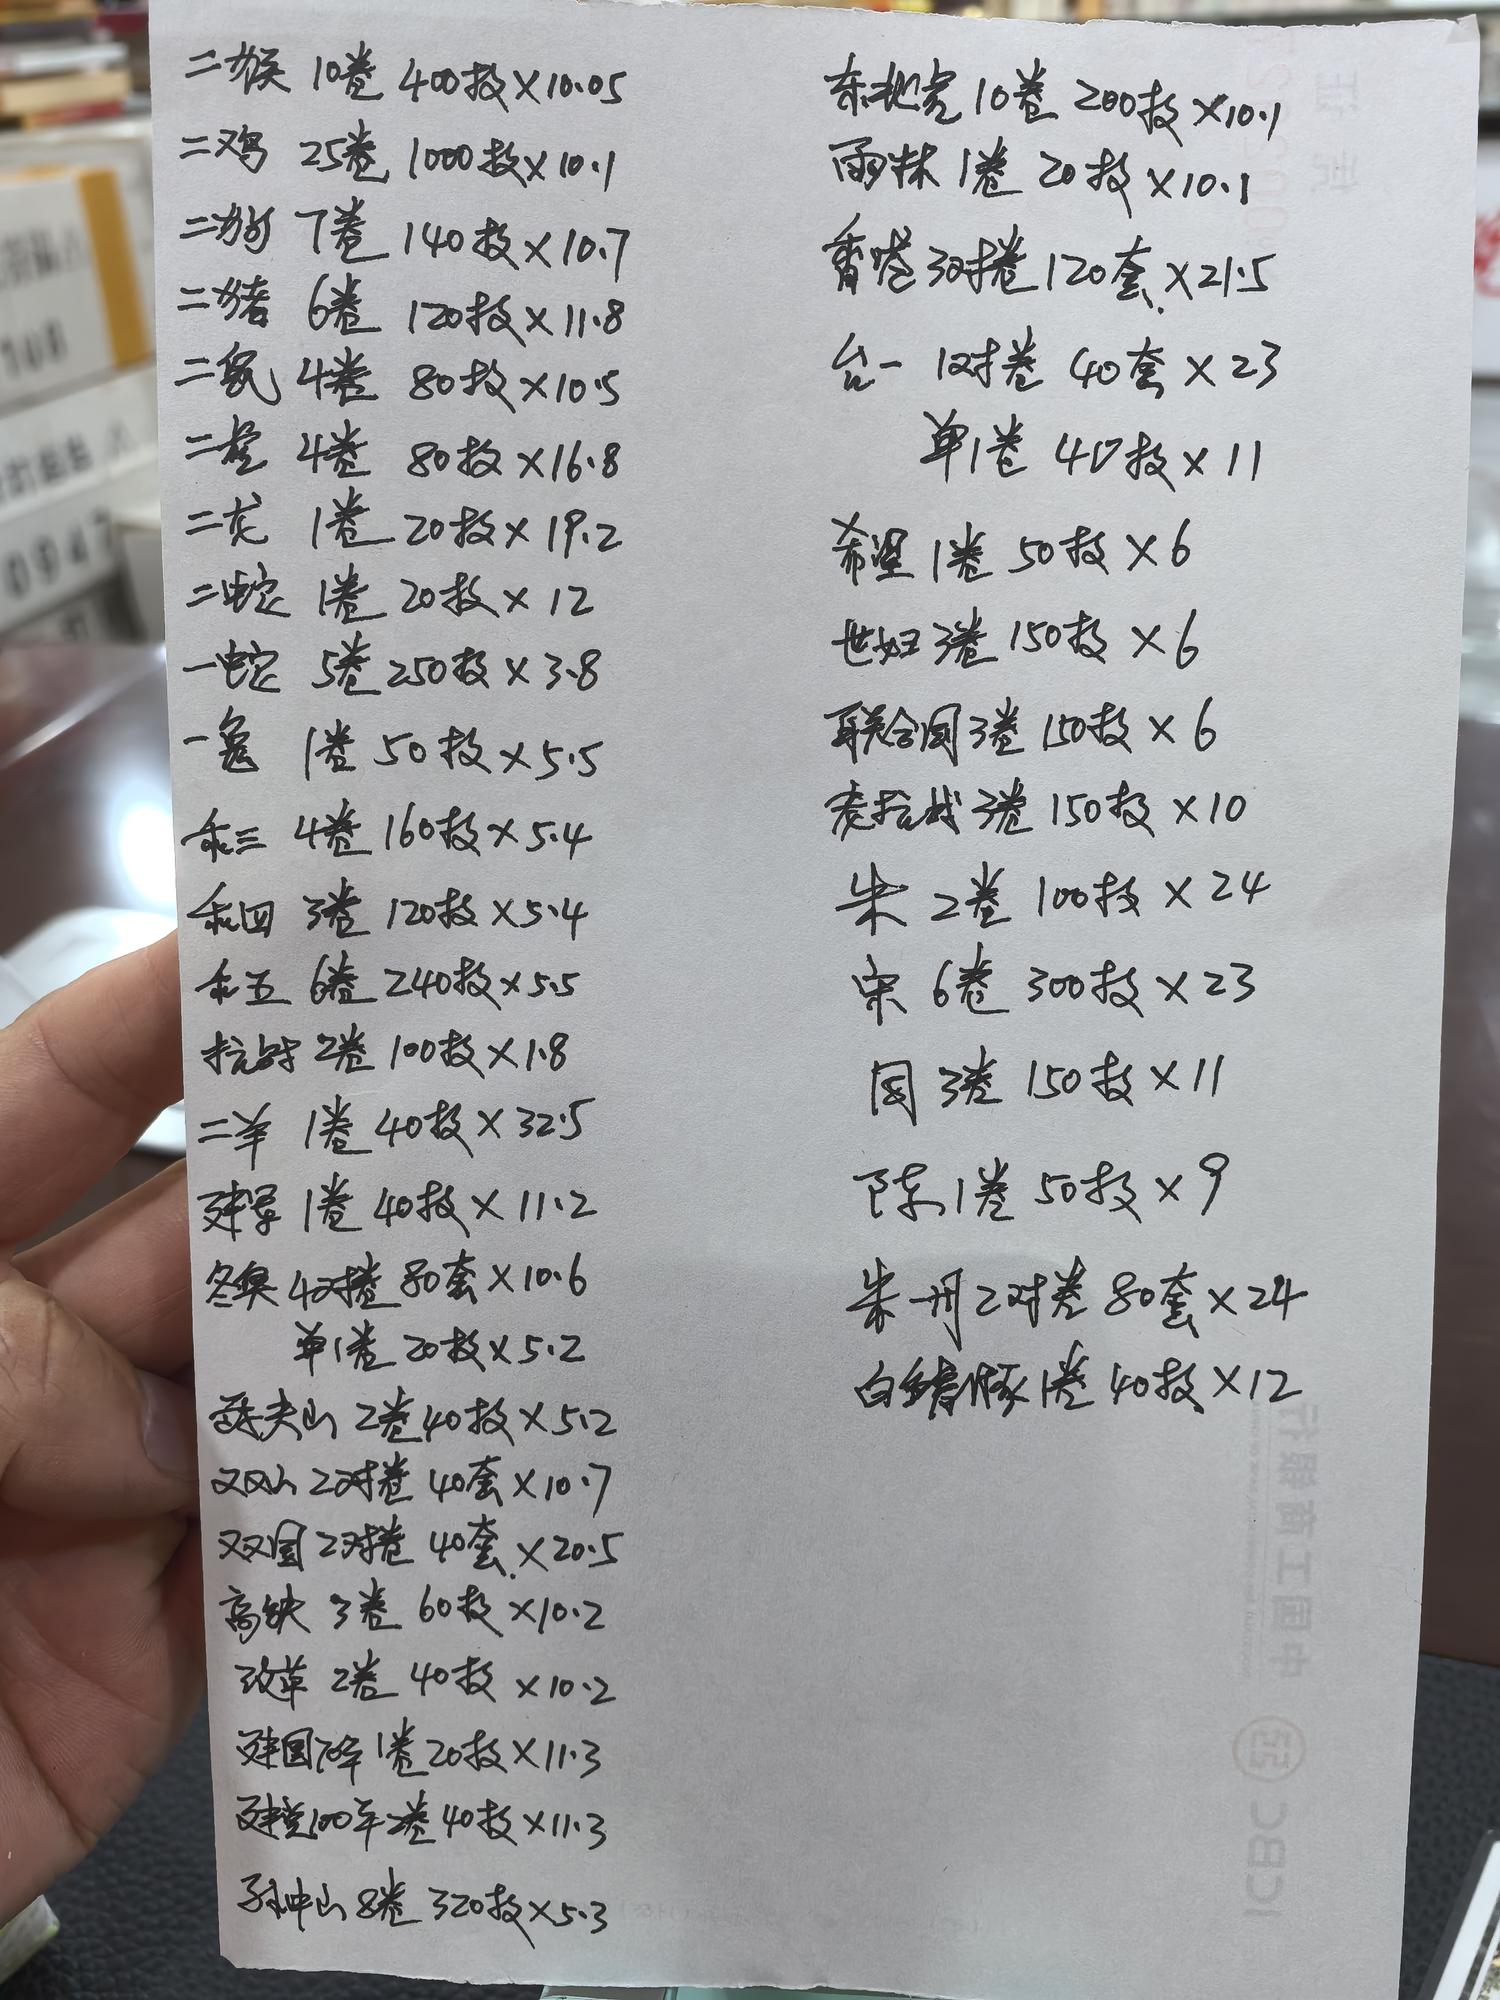 二猴 10卷 400枚×10.05
二鸡 25卷 1000枚×10.1
二狗 7卷 140枚×10.7
二猪 6卷 120枚×11.8
二鼠 4卷 80枚×10.5
二虎 4卷 80枚×16.8
二龙 1卷 20枚×19.2
二蛇 1卷 20枚×12
一蛇 5卷 250枚×3.8
一兔 1卷 50枚×5.5
永三 4卷 160枚×5.4
永四 3卷 120枚×5.4
永五 6卷 240枚×5.5
抗战 2卷 100枚×1.8
二羊 1卷 40枚×32.5
建军 1卷 40枚×11.2
冬奥 4对卷 80套×10.6
单1卷 20枚×5.2
武夷山 2卷 40枚×5.2
双山 2对卷 40套×10.7
双国 2对卷 40套×20.5
高铁 3卷 60枚×10.2
改革 2卷 40枚×10.2
建国70年 1卷 20枚×11.3
建党100年 2卷 40枚×11.3
孙中山 8卷 320枚×5.3
东北虎 10卷 200枚×10.1
雨林 1卷 20枚×10.1
香港 3对卷 120套×21.5
台一 1对卷 40套×23
单1卷 40枚×11
希望 1卷 50枚×6
世妇 3卷 150枚×6
联合国 3卷 150枚×6
老抗战 3卷 150枚×10
朱 2卷 100枚×24
宋 6卷 300枚×23
周 3卷 150枚×11
陈 1卷 50枚×9
朱一册 2对卷 80套×24
白鳍豚 1卷 40枚×12
中国工商银行
ICBC
0947